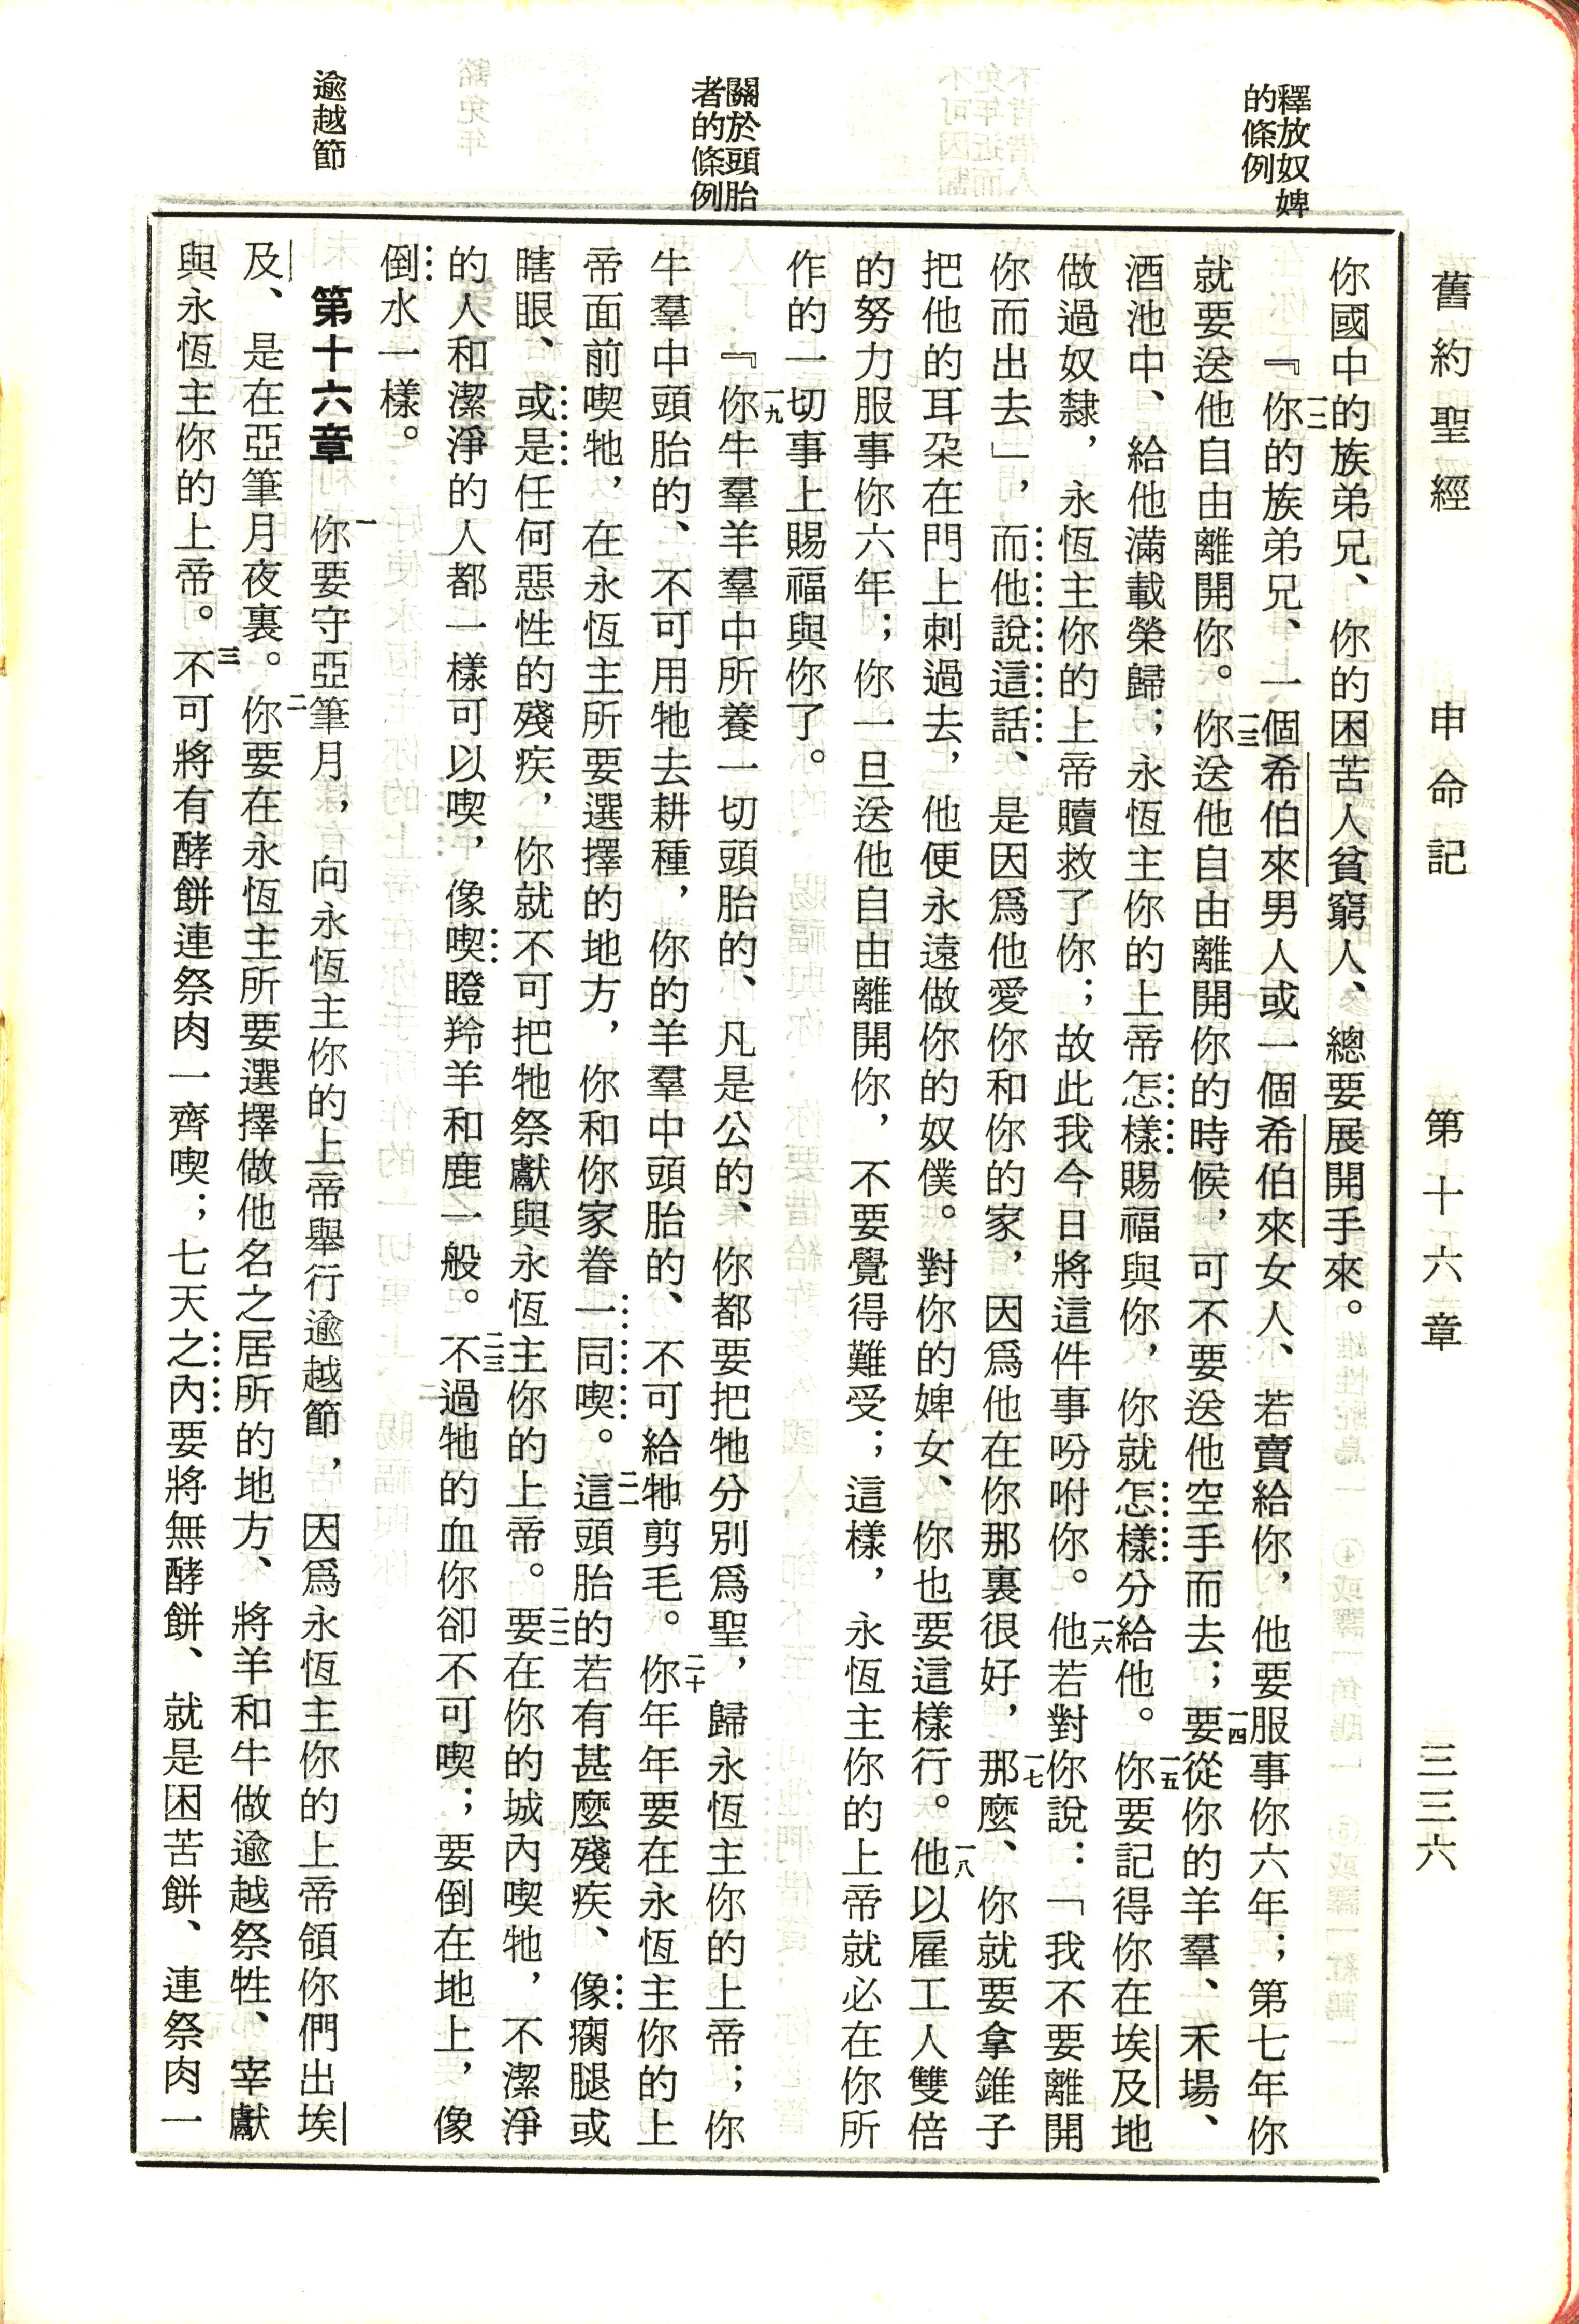 舊約聖經　申命記　第十六章　三三六
釋放奴婢
的條例
關於頭胎
者的條例
逾越節
你國中的族弟兄、你的困苦人貧窮人、總要展開手來。
『一二你的族弟兄、一個希伯來男人或一個希伯來女人、若賣給你，他要服事你六年；第七年你
就要送他自由離開你。一三你送他自由離開你的時候，可不要送他空手而去；一四要從你的羊羣、禾場、
酒池中、給他滿載榮歸；永恆主你的上帝怎樣賜福與你，你就怎樣分給他。一五你要記得你在埃及地
做過奴隸，永恆主你的上帝贖救了你；故此我今日將這件事吩咐你。一六他若對你說：「我不要離開
你而出去」，而他說這話、是因爲他愛你和你的家，因爲他在你那裏很好，一七那麼、你就要拿錐子
把他的耳朶在門上刺過去，他便永遠做你的奴僕。對你的婢女、你也要這樣行。一八他以雇工人雙倍
的努力服事你六年；你一旦送他自由離開你，不要覺得難受；這樣，永恆主你的上帝就必在你所
作的一切事上賜福與你了。
『一九你牛羣羊羣中所養一切頭胎的、凡是公的、你都要把牠分別爲聖，歸永恆主你的上帝；你
牛羣中頭胎的、不可用牠去耕種，你的羊羣中頭胎的、不可給牠剪毛。二十你年年要在永恆主你的上
帝面前喫牠，在永恆主所要選擇的地方，你和你家眷一同喫。二一這頭胎的若有甚麼殘疾、像瘸腿或
瞎眼、或是任何惡性的殘疾，你就不可把牠祭獻與永恆主你的上帝。二二要在你的城內喫牠，不潔淨
的人和潔淨的人都一樣可以喫，像喫瞪羚羊和鹿一般。二三不過牠的血你卻不可喫；要倒在地上，像
倒水一樣。
第十六章　一你要守亞筆月，向永恆主你的上帝舉行逾越節，因爲永恆主你的上帝領你們出埃
及、是在亞筆月夜裏。二你要在永恆主所要選擇做他名之居所的地方、將羊和牛做逾越祭牲、宰獻
與永恆主你的上帝。三不可將有酵餅連祭肉一齊喫；七天之內要將無酵餅、就是困苦餅、連祭肉一